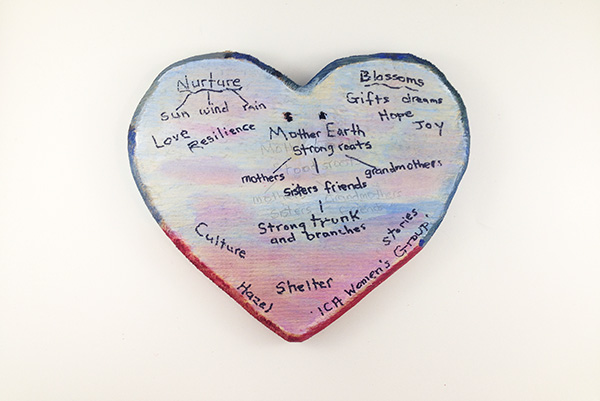 Nurture
sun wind rain
Love
Resilience
Blossoms
Gifts dreams
Hope
Joy
Mother Earth
Strong roots
mothers
sisters friends
grandmothers
Strong trunk
and branches
Culture
Shelter
stories
Hazel
ICA Women's Group.